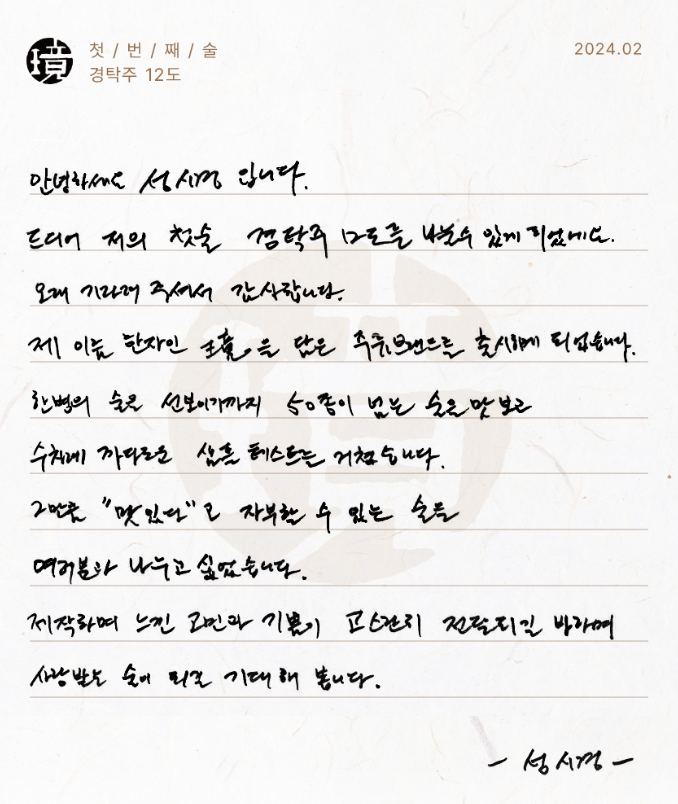 境
첫 / 번 / 째 / 술
경탁주 12도
2024.02
안녕하세요 성시경 입니다.
드디어 저의 첫술 경탁주 12도를 나눌수 있게 되었네요.
오래 기다려 주셔서 감사합니다.
제 이름 한자인 境을 담은 주류브랜드를 출시하게 되었습니다.
한병의 술을 선보이기까지 50종이 넘는 술을 맛보고
수차례 까다로운 샘플 테스트를 거쳤습니다.
그만큼 "맛있다"고 자부할 수 있는 술을
여러분과 나누고 싶었습니다.
제작하며 느낀 고민과 기쁨이 고스란히 전달되길 바라며
사랑받는 술이 되길 기대해 봅니다.
- 성시경 -